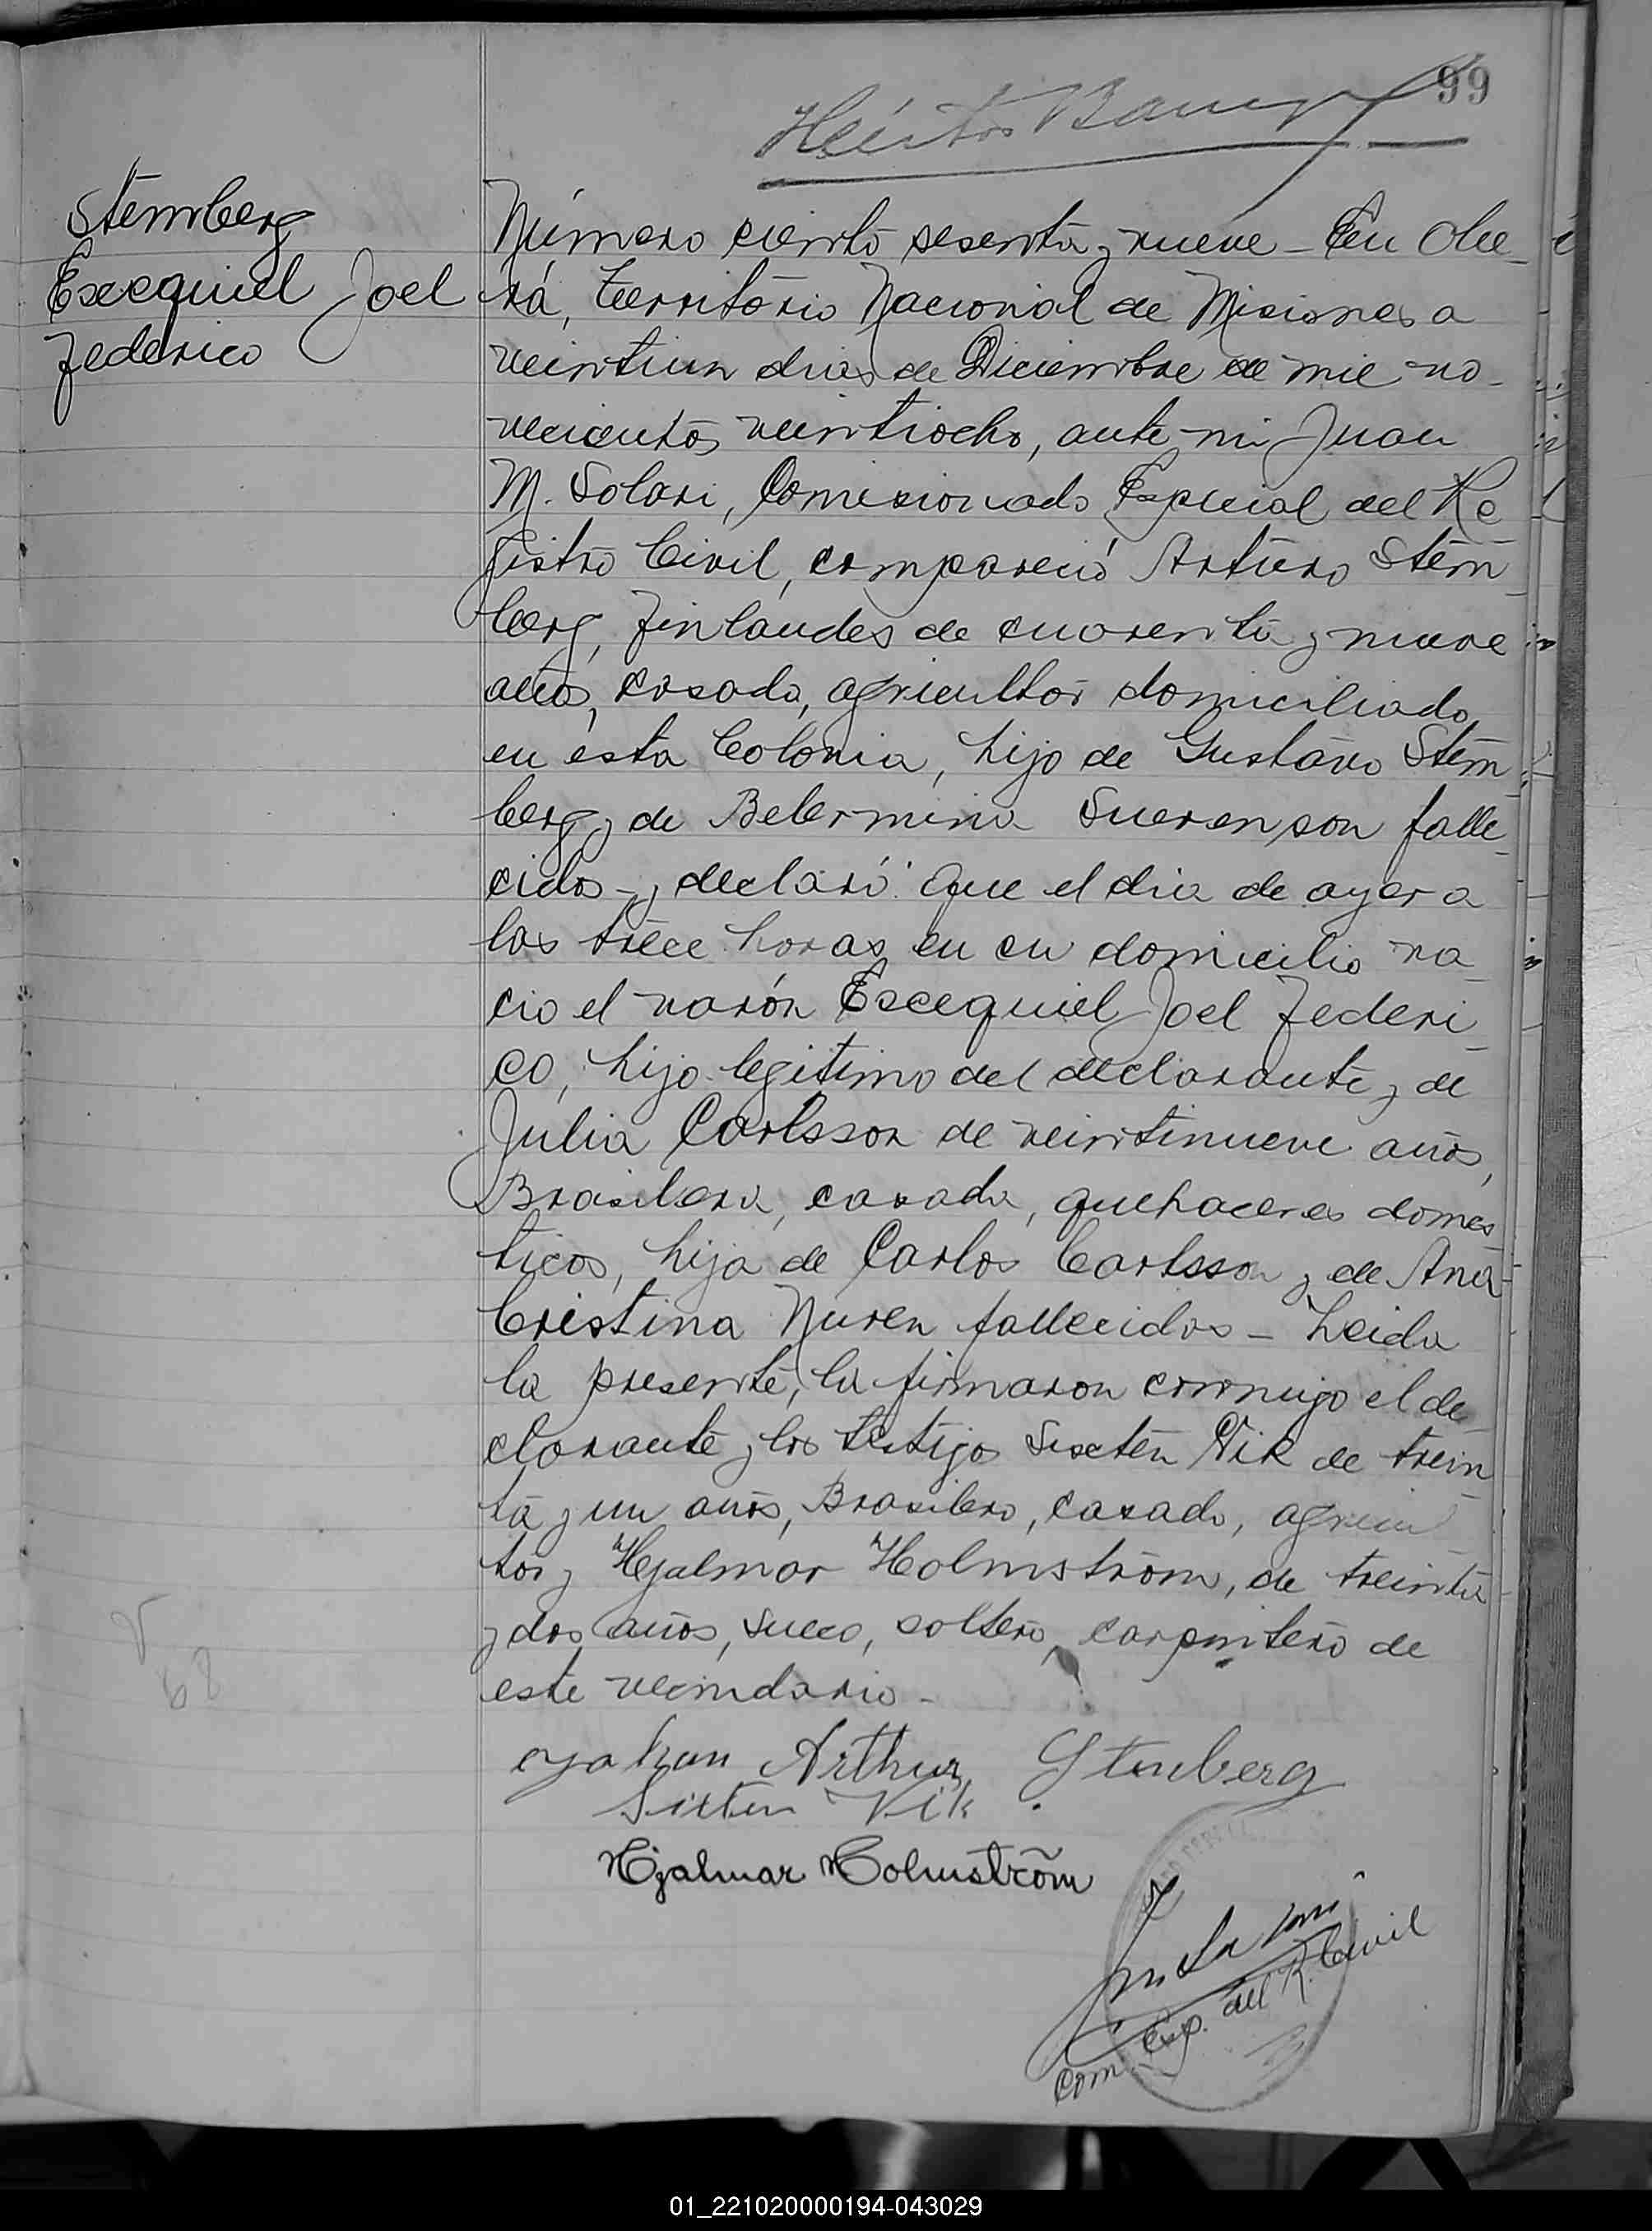 99
Héctor
Stemberg
Escequiel Joel
Federico
Número ciento sesenta y nueve - En Obe-
rá, Territorio Nacional de Misiones a
veintiun dias de Diciembre de mil no-
vecientos veintiocho, ante mi Juan
M. Solari, Comisionado Especial del Re-
gistro Civil, compareció Arturo Stem-
berg, Finlandes de cuarenta y nueve
años, casado, agricultor domiciliado
en ésta Colonia, hijo de Gustavo Stem-
berg y de Belermina Suerenson falle-
cidos - y declaró: Que el dia de ayer a
las trece horas en su domicilio na-
cio el varón Escequiel Joel Federi-
co, hijo legitimo del declarante y de
Julia Carlsson de veintinueve años,
Brasilera, casada, quehaceres domes-
ticos, hija de Carlos Carlsson y de Ana
Cristina Nuren fallecidos - Leida
la presente, la firmaron conmigo el de-
clarante y los testigos Sixten Vik de trein
ta y un años, Brasilero, casado, agricul
tor y Hjalmar Holmström, de treinta
y dos años, sueco, soltero, carpintero de
este vecindario -
Arthur Stenberg
Sixten Vik
Hjalmar Holmström
Com. Esp. del R. Civil
01_221020000194-043029